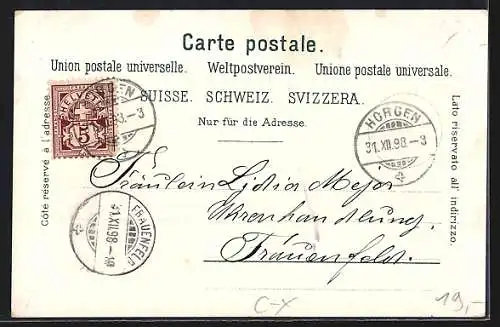 Carte postale.
Union postale universelle. Weltpostverein. Unione postale universale.
SUISSE. SCHWEIZ. SVIZZERA.
Nur für die Adresse.
Côté réservé à l'adresse.
Lato riservato all' indirizzo.
HELVETIA
5
HORGEN
31.XII.98.-3
HORGEN
31.XII.98.-3
FRAUENFELD
31.XII.98.-10
Fräulein Lidia Meyer
Uhrenhandlung,
Frauenfeld.
C-X
19,-